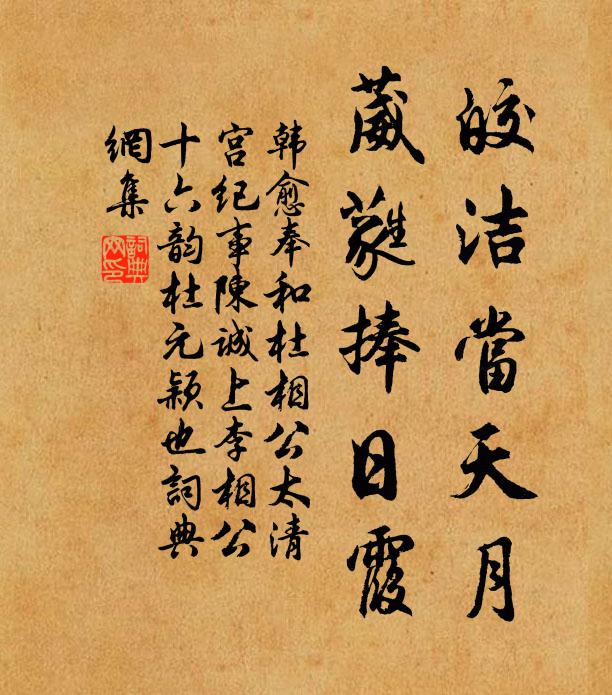 皎洁當天月
葳蕤捧日霞
韩愈奉和杜相公太清
宫纪事陳诚上李相公
十六韵杜元颖也詞典
網集
詞典
网印